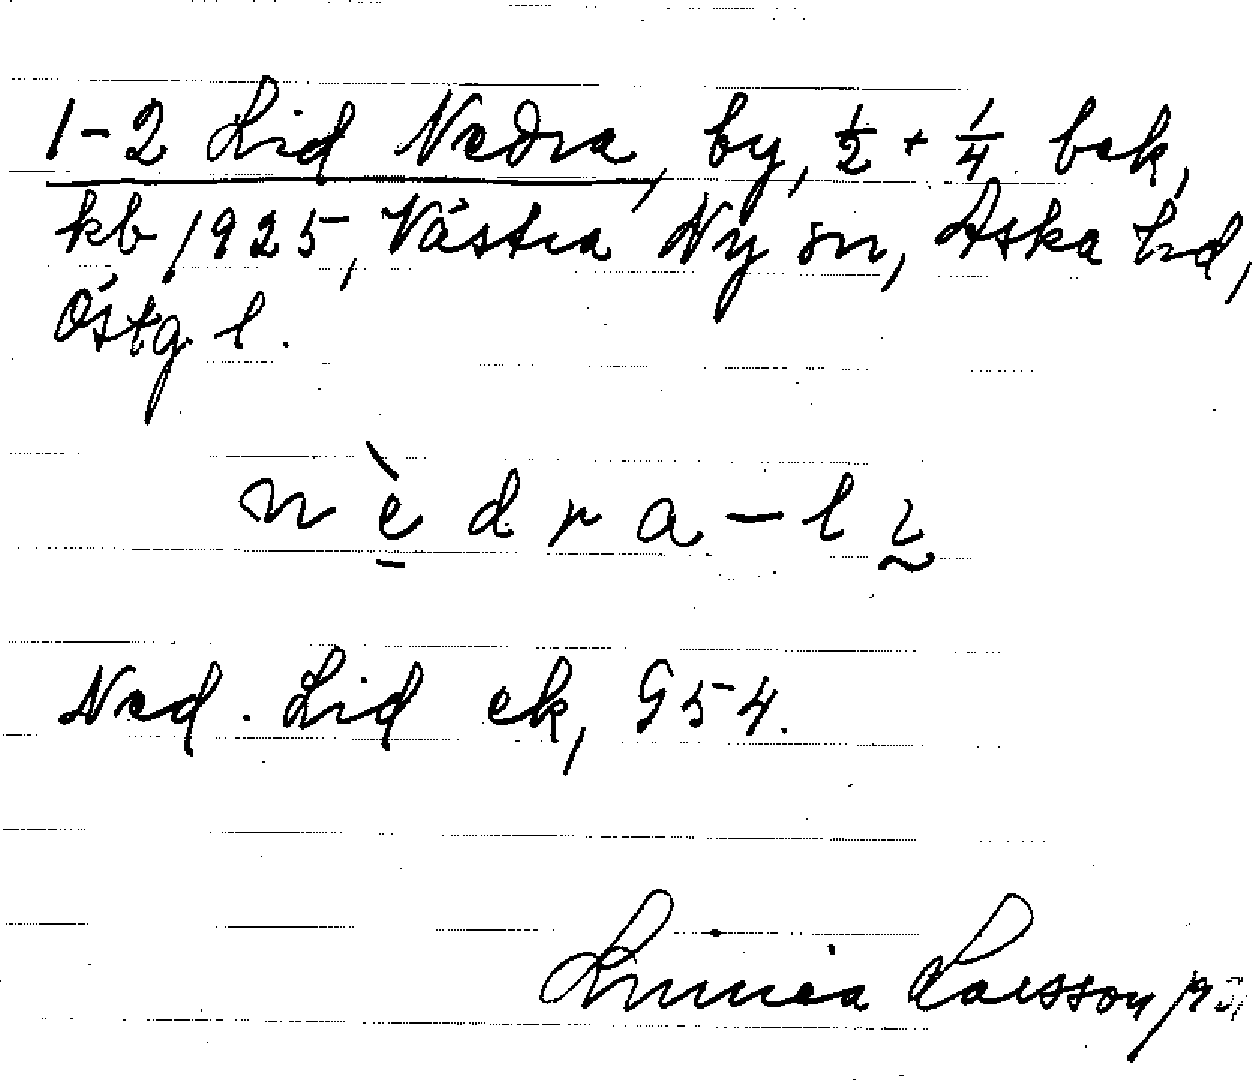 1-2 Lid Nedra, by, 1/2 + 1/4 bek,
kb 1925, Västra Ny sn, Aska hd,
Östg. l.
n è d r a - l i
Ned. Lid ek, G54.
Linnéa Larsson